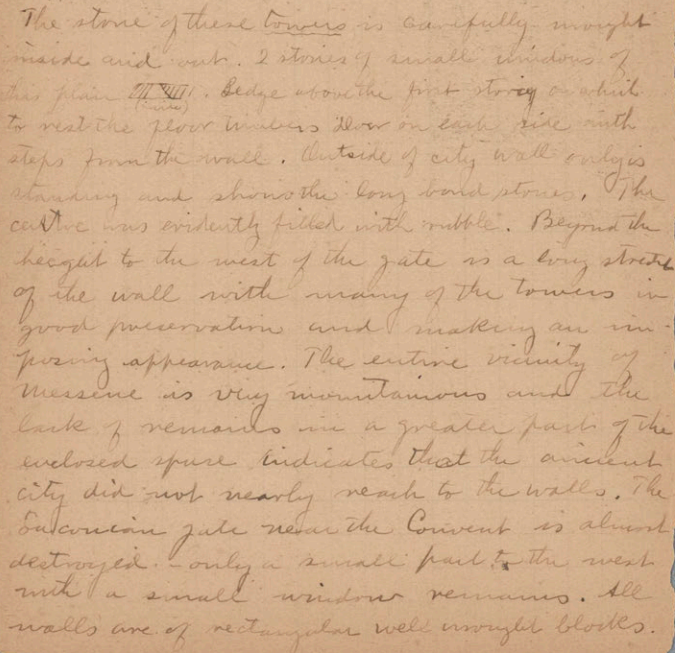 The stone of these towers is carefully wrought
inside and out. 2 stories of small windows of
this plain. Ledge above the first story on which
to rest the floor timbers. Door on each side with
steps from the wall. Outside of city wall only is
standing and shows the long bond stones. The
centre was evidently filled with rubble. Beyond the
height to the west of the gate is a long stretch
of the wall with many of the towers in
good preservation and making an im-
posing appearance. The entire vicinity of
Messene is very mountainous and the
lack of remains in a greater part of the
enclosed space indicates that the ancient
city did not nearly reach to the walls. The
Laconian gate near the Convent is almost
destroyed - only a small part to the west
with a small window remains. All
walls are of rectangular well wrought blocks.